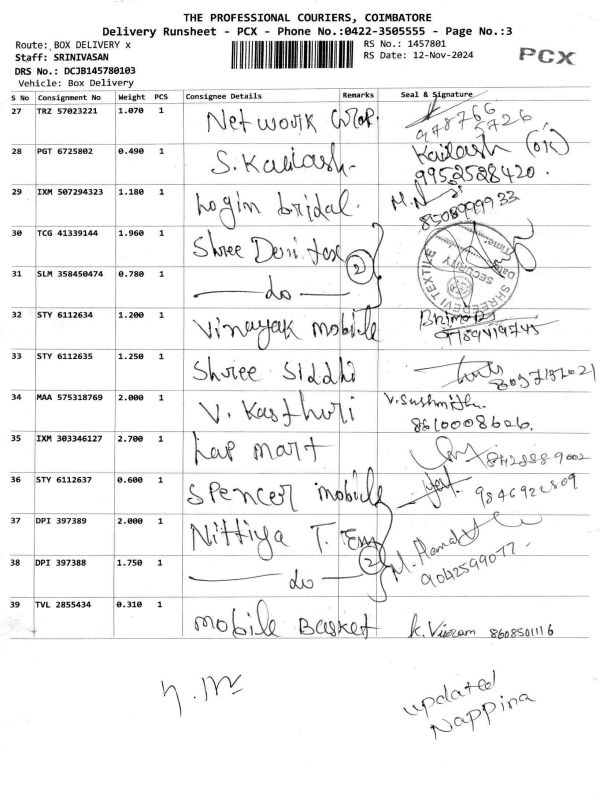 THE PROFESSIONAL COURIERS, COIMBATORE
Delivery Runsheet - PCX - Phone No.:0422-3505555 - Page No.:3
Route: BOX DELIVERY x
RS No.: 1457801
Staff: SRINIVASAN
RS Date: 12-Nov-2024
PCX
DRS No.: DCJB145780103
Vehicle: Box Delivery
S No Consignment No Weight PCS Consignee Details Remarks Seal & Signature
27 TRZ 57023221 1.070 1 Network 978766 8726
28 PGT 6725802 0.490 1 S. Kailash Kailash (OK) 9952528420
29 IXM 507294323 1.180 1 Login bridal
30 TCG 41339144 1.960 1 Shree Devi tex
2
SHREE DEVI TEXTILE SECURITY Date: Time:
31 SLM 358450474 0.780 1 — do —
32 STY 6112634 1.200 1 Vinayak mobile
33 STY 6112635 1.250 1 Shree Siddhi
34 MAA 575318769 2.000 1 V. Kasthuri V. Sushmitha 8610008606
35 IXM 303346127 2.700 1 Lap mart
36 STY 6112637 0.600 1 Spencer mobile
37 DPI 397389 2.000 1 Nittiya T.
2
38 DPI 397388 1.750 1 — do — 9042599077
39 TVL 2855434 0.310 1 mobile Basket 8608501116
updated
Nappina